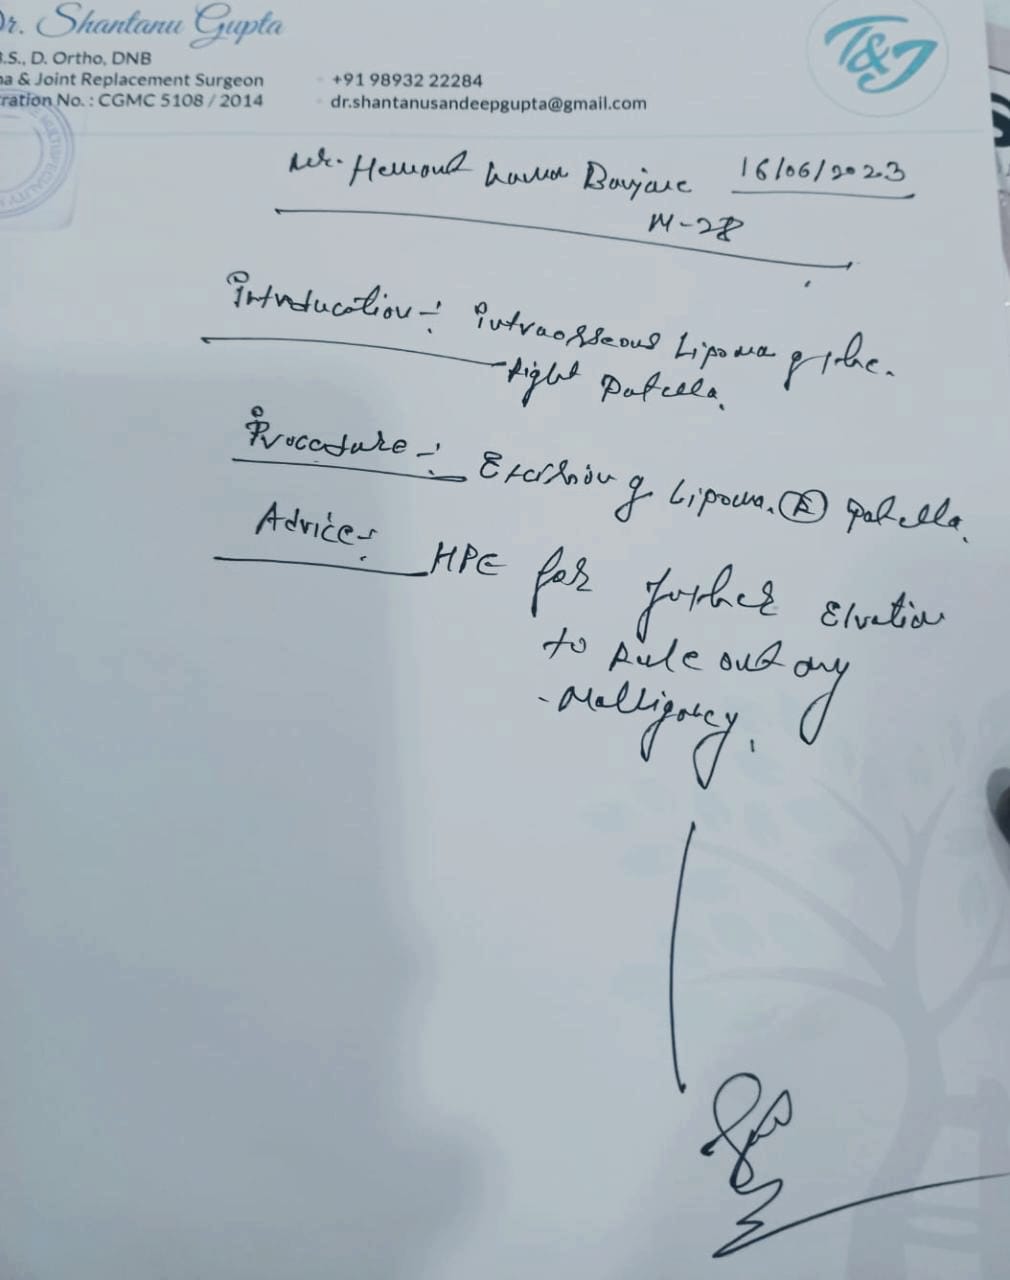 Dr. Shantanu Gupta
.S., D. Ortho, DNB
a & Joint Replacement Surgeon
ration No. : CGMC 5108 / 2014
+91 98932 22284
dr.shantanusandeepgupta@gmail.com
T&J
MULTISPECIALITY
Mr. Hemant 16/06/2023
M-28
Introducation :- Intraosseous Lipoma of the.
Right Patella.
Procedure :- Excision of Lipoma. (R) Patella.
Advice :-
HPE for further
to Rule out any
- Malligancy.